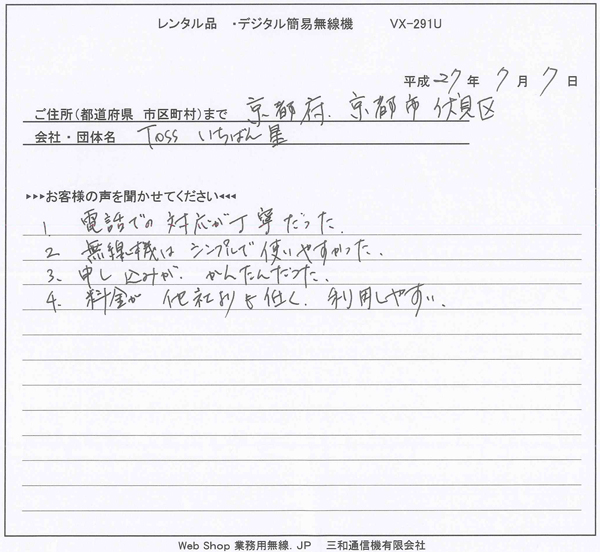 レンタル品 ・デジタル簡易無線機 VX-291U
平成 27 年 7 月 7 日
ご住所(都道府県 市区町村)まで 京都府. 京都市 伏見区
会社・団体名 Toss いちばん星
▸▸▸お客様の声を聞かせてください◂◂◂
1. 電話での対応が丁寧だった.
2. 無線機は シンプルで 使いやすかった.
3. 申し込みが. かんたんだった.
4. 料金が 他社よりも 低く. 利用しやすい.
Web Shop 業務用無線.JP 三和通信機有限会社